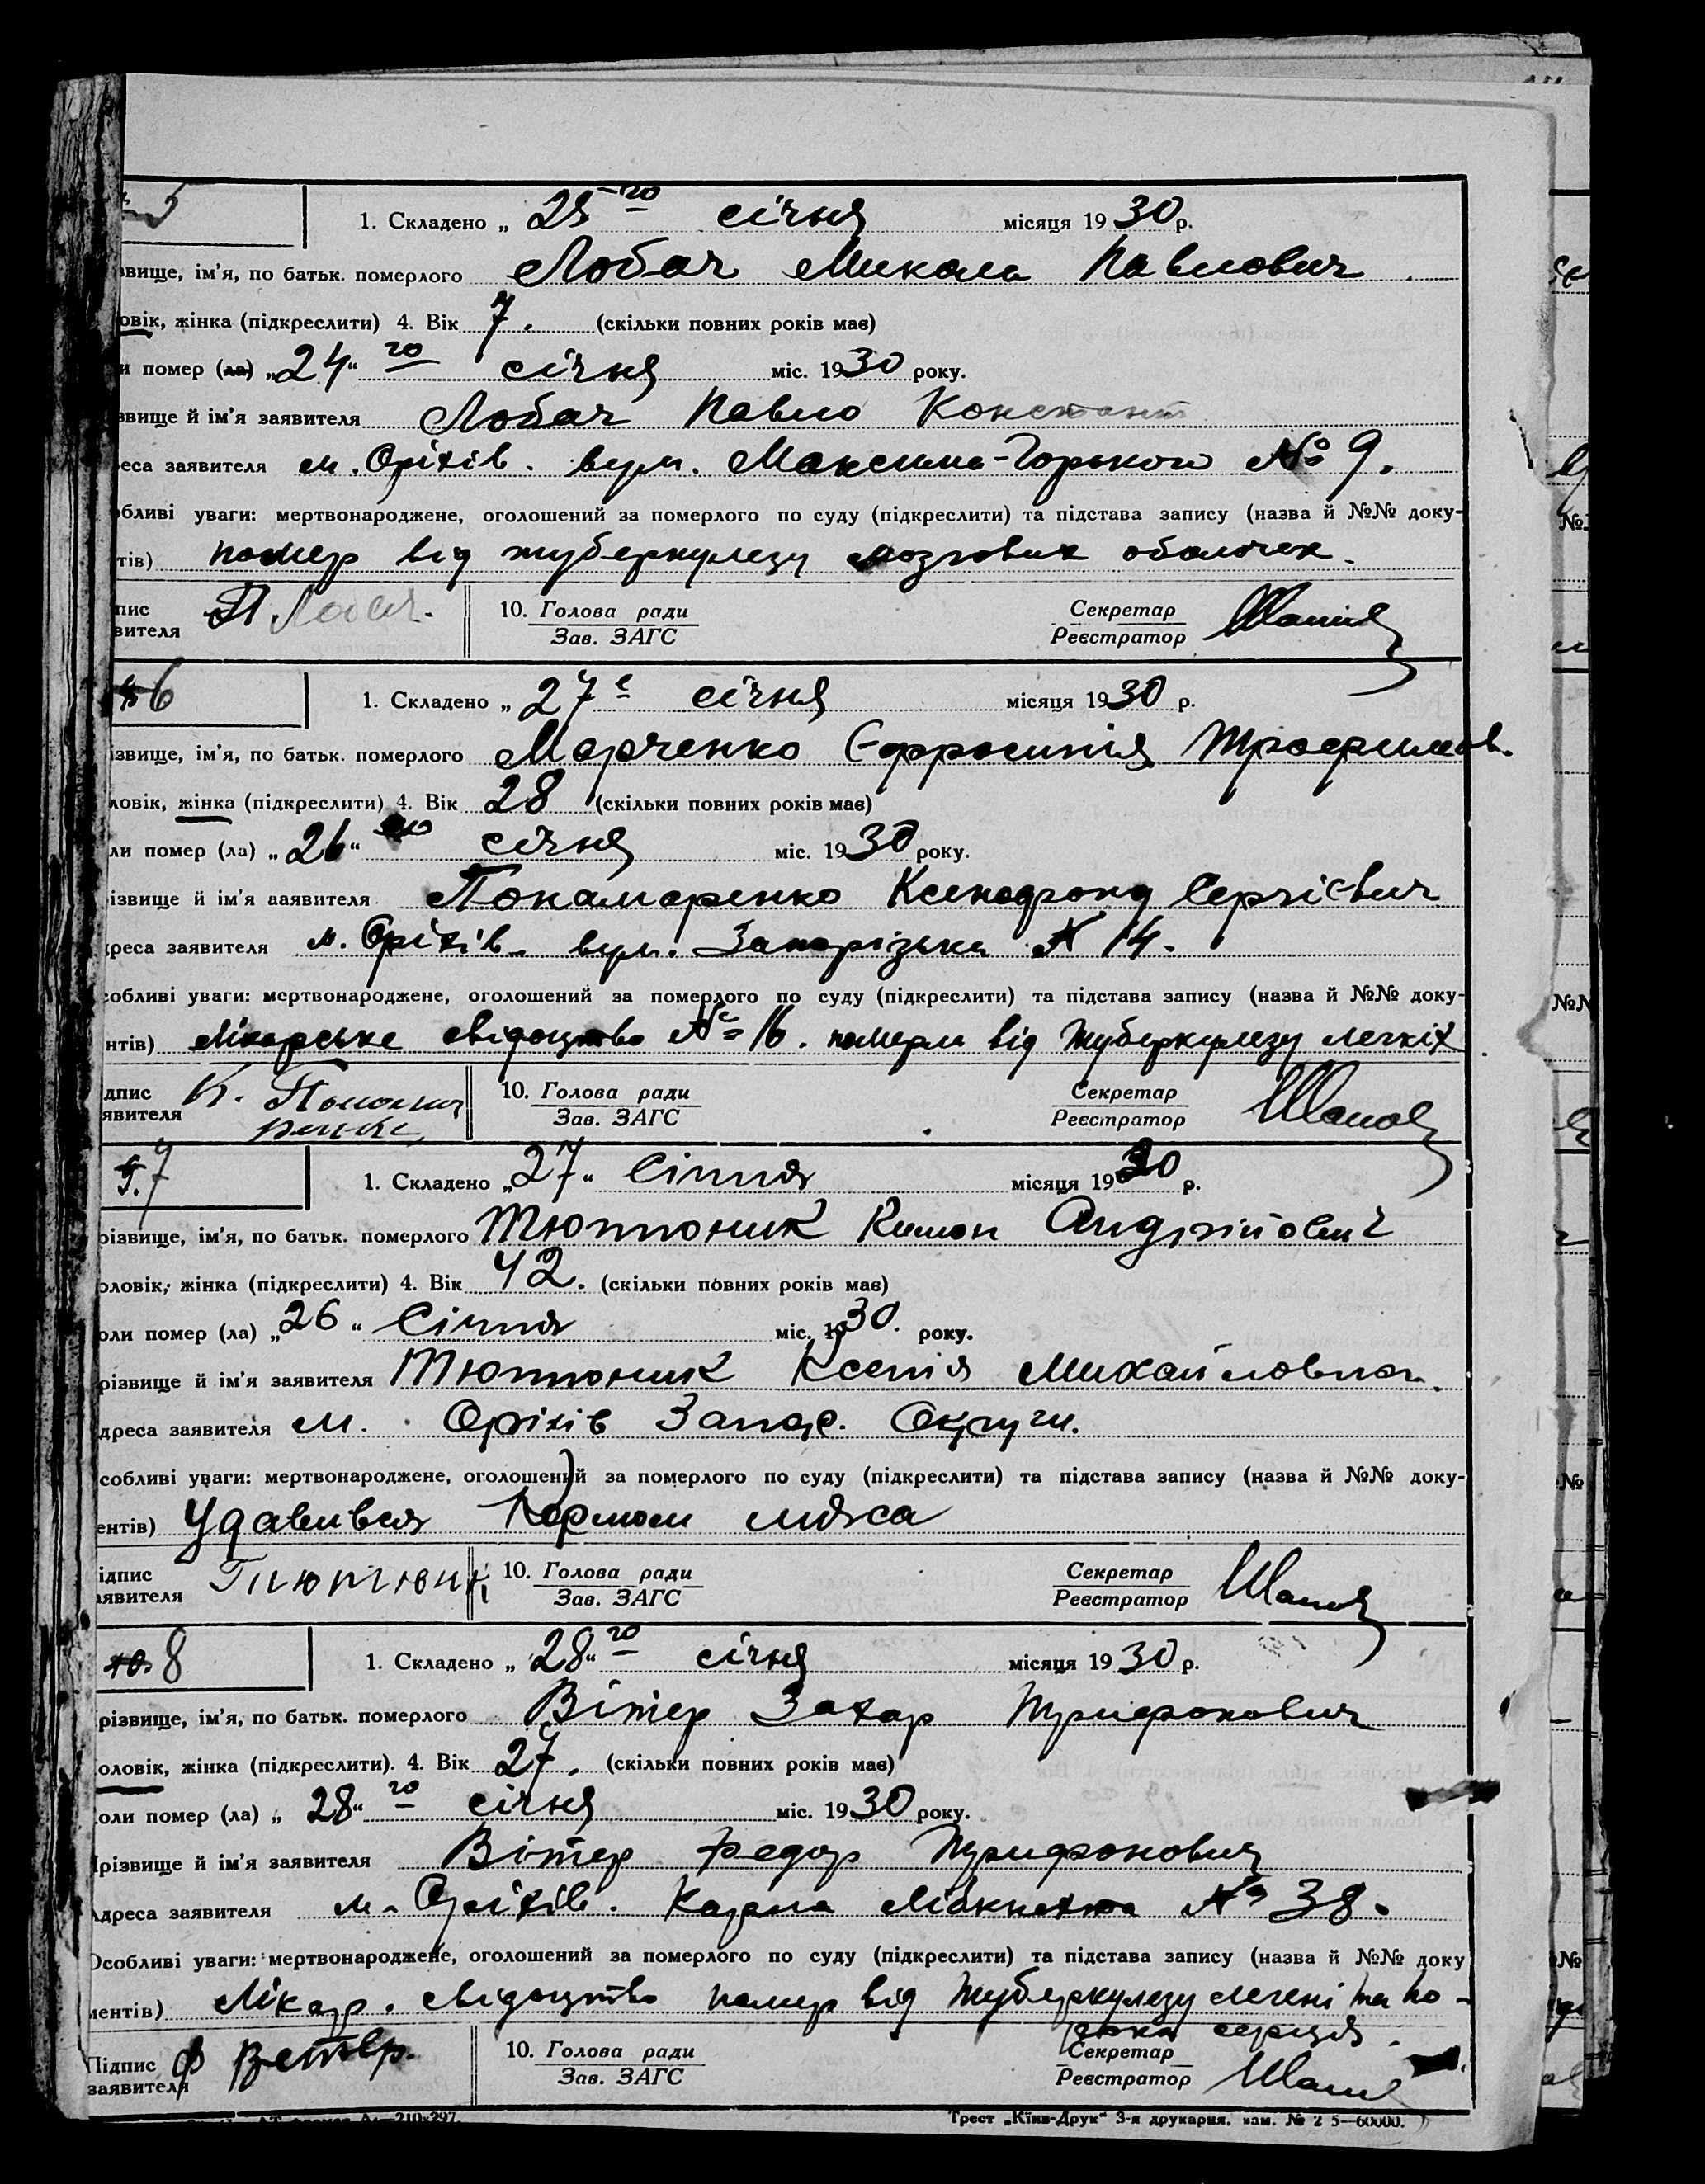 5
1. Складено „ 25-го січня місяця 1930 р.
звище, ім'я, по батьк. померлого Лобач Микола Павлович
овік, жінка (підкреслити) 4. Вік 7. (скільки повних років має)
и помер (ла) „24“ го січня міс. 1930 року.
звище й ім'я заявителя Лобач Павло Констант
реса заявителя м. Оріхів. вул. Максима-Горького № 9.
обливі уваги: мертвонароджене, оголошений за померлого по суду (підкреслити) та підстава запису (назва й №№ доку-
тів) помер від туберкулезу мозгових оболочек.
пис
вителя П Лобач.
10. Голова ради
Зав. ЗАГС
Секретар
Реєстратор
6
1. Складено „ 27 е січня місяця 1930 р.
ізвище, ім'я, по батьк. померлого Марченко Єфросинія Трофимов.
ловік, жінка (підкреслити) 4. Вік 28 (скільки повних років має)
ли помер (ла) „ 26“ го січня міс. 1930 року.
ізвище й ім'я заявителя Понамаренко Ксенофонд Сергієвич
реса заявителя м. Оріхів. вул. Запорізька № 14.
собливі уваги: мертвонароджене, оголошений за померлого по суду (підкреслити) та підстава запису (назва й №№ доку-
нтів) лікарське свідоцтво № 16. померла від туберкулезу легкіх
дпис
явителя К. Понома
ренко
10. Голова ради
Зав. ЗАГС
Секретар
Реєстратор
7
1. Складено „27“ Січня місяця 1930 р.
різвище, ім'я, по батьк. померлого Тютюник Кимон Андрійович
оловік, жінка (підкреслити) 4. Вік 42. (скільки повних років має)
оли помер (ла) „26“ Січня міс. 1930. року.
різвище й ім'я заявителя Тютюник Ксенія Михайловна.
дреса заявителя м. Оріхів Запор. Округи.
собливі уваги: мертвонароджене, оголошений за померлого по суду (підкреслити) та підстава запису (назва й №№ доку-
ентів) Удавився мяса
ідпис
аявителя Тютюник
10. Голова ради
Зав. ЗАГС
Секретар
Реєстратор
10. 8
1. Складено „ 28“ го січня місяця 1930 р.
різвище, ім'я, по батьк. померлого Вітер Захар Трифонович
оловік, жінка (підкреслити). 4. Вік 27. (скільки повних років має)
оли помер (ла) „ 28“ го січня міс. 1930 року.
різвище й ім'я заявителя Вітер Федор Трифонович
Адреса заявителя м. Оріхів. Карла Лібкнехта № 38.
Особливі уваги: мертвонароджене, оголошений за померлого по суду (підкреслити) та підстава запису (назва й №№ доку
ментів) Лікар. свідоцтво помер від туберкулезу легені та по-
рока серця.
Підпис
заявителя Ф Ветер.
10. Голова ради
Зав. ЗАГС
Секретар
Реєстратор
210×297.
Трест „Київ-Друк“ 3-я друкарня. зам. № 2 5—60000.